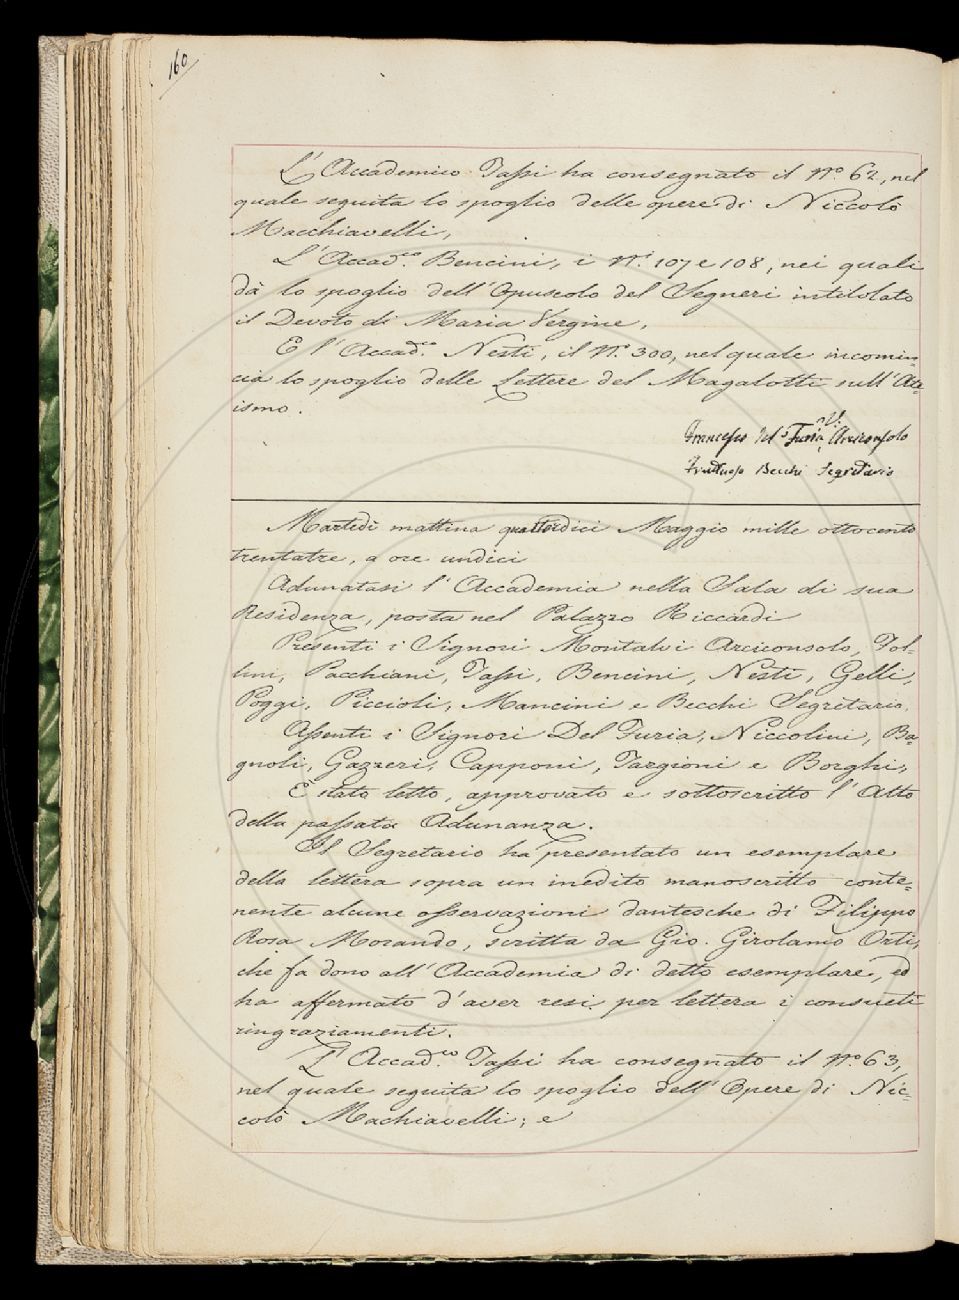 160
L'Accademico Tassi ha consegnato il N.o 62, nel
quale seguita lo spoglio delle opere di Niccolò
Macchiavelli,
L'Accad.co Bencini, i N.i 107 e 108, nei quali
dà lo spoglio dell'Opuscolo del Segneri intitolato
il Devoto di Maria Vergine,
E l'Accad.co Nesti, il N.o 300, nel quale incomin=
cia lo spoglio delle Lettere del Magalotti sull'Ate=
ismo.
Francesco del Furia, Arciconsolo
Fruttuoso Becchi Segretario
Martedì mattina quattordici Maggio mille ottocento
trentatre, a ore undici
Adunatasi l'Accademia nella Sala di sua
Residenza, posta nel Palazzo Riccardi
Presenti i Signori Montalvi Arciconsolo, Fol=
lini, Pacchiani, Tassi, Bencini, Nesti, Gelli,
Poggi, Piccioli, Mancini e Becchi Segretario.
Assenti i Signori Del Furia, Niccolini, Ba=
gnoli, Gazzeri, Capponi, Targioni e Borghi,
È stato letto, approvato e sottoscritto l'Atto
della passata Adunanza.
Il Segretario ha presentato un esemplare
della lettera sopra un inedito manoscritto conte=
nente alcune osservazioni dantesche di Filippo
Rosa Morando, scritta da Gio. Girolamo Orti,
che fa dono all'Accademia di detto esemplare, ed
ha affermato d'aver resi per lettera i consueti
ringraziamenti.
L'Accad.co Tassi ha consegnato il N.o 63,
nel quale seguita lo spoglio dell'Opere di Nic=
colò Machiavelli; e